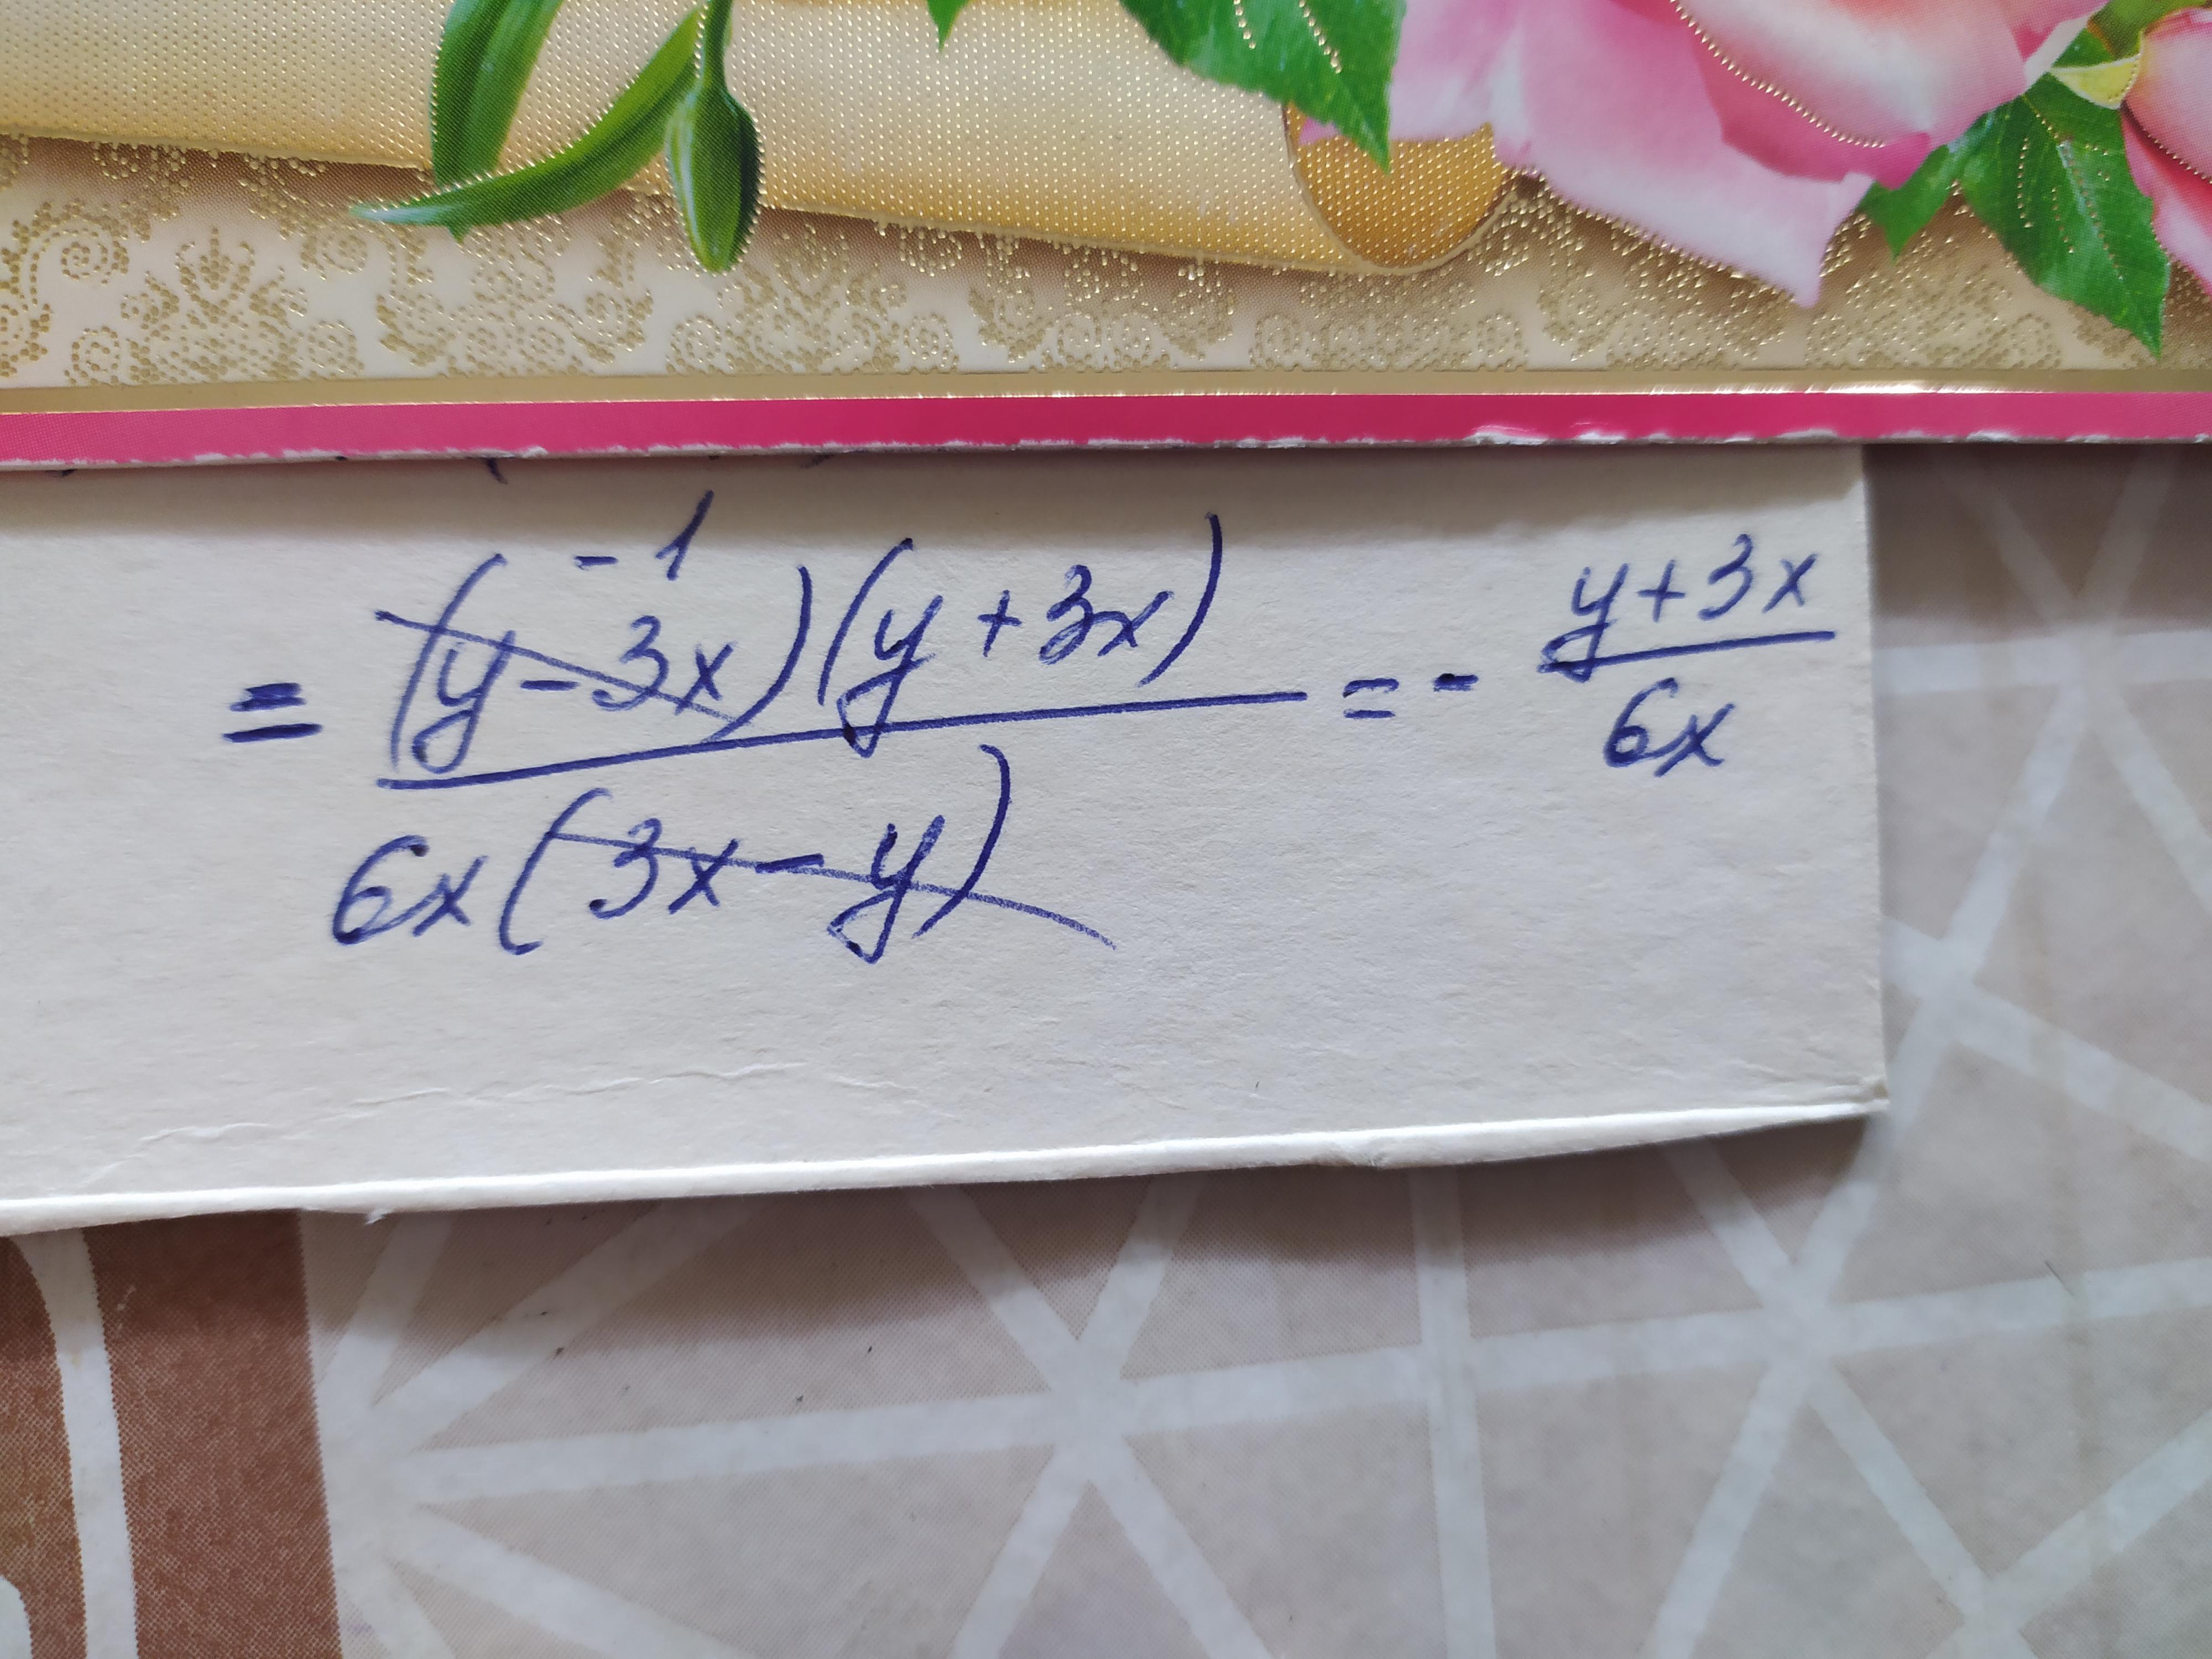 = (y - 3x)^-1 (y + 3x) / 6x(3x - y) = - y + 3x / 6x